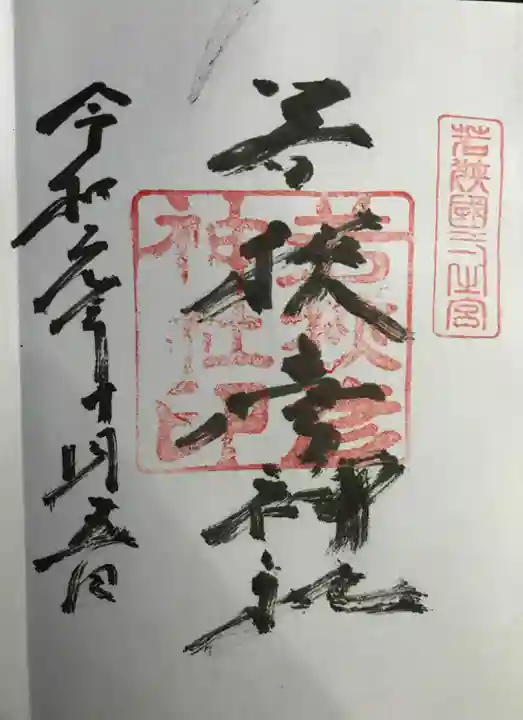 若狹國一之宮
若狭彦神社
若狭彦
神社印
令和元年十月五日